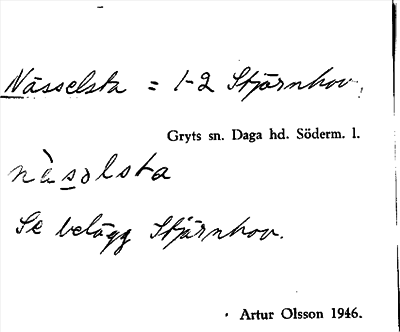 Nässelsta = 1-2 Stjärnhov,
Gryts sn. Daga hd. Söderm. l.
nàsəlsta
Se belägg Stjärnhov.
Artur Olsson 1946.